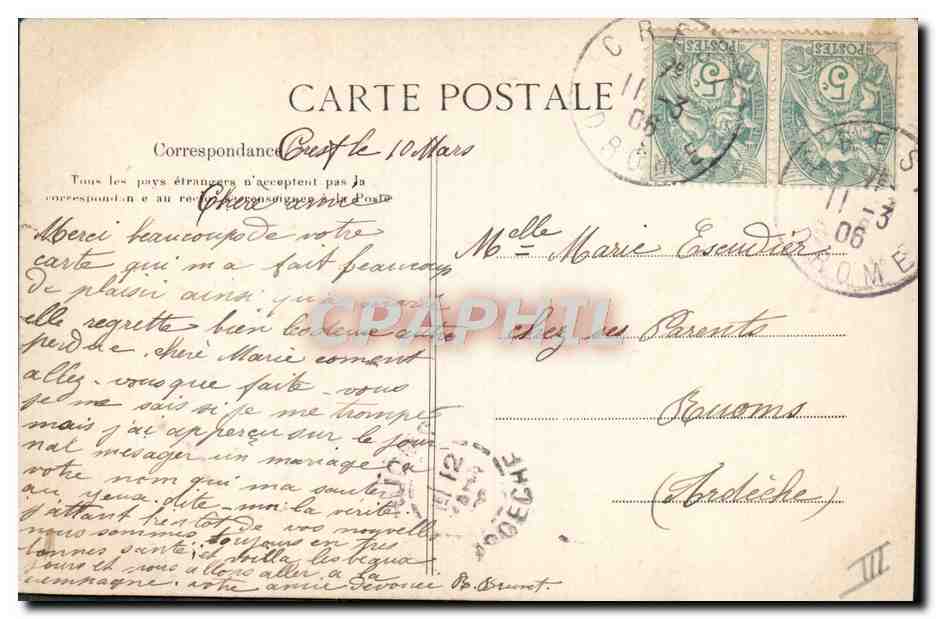 CARTE POSTALE
Correspondance
Crest le 10 Mars
Tous les pays étrangers n'acceptent pas la
correspondance au recto, se renseigner à la Poste
Cherè amie
Merci beaucoup de votre
carte qui m a fait beaucoup
de plaisir ainsi qu'a
elle regrette bien
perdue, cherè Marie coment
allez-vous que faite-vous
je ne sais si je me trompe
mais j'ai apperçu sur le jour
nal mesager un mariage a
votre nom qui ma sauter
au yeux. dite-moi la verite
j'attant bientot de vos nouvelle
nous sommes toujours en tres
bonnes santé, et voilla les beaux
jours et nous allons aller a la
campagne. votre amie devouée B. Brunt.
Melle Marie Escudier
chez ses Parents
Ruoms
(Ardèche)
CREST
11 -3
06
DROME
5
POSTES
5
POSTES
CREST
11 -3
06
DROME
RUOMS
12
ARDECHE
CPAPHIL
III